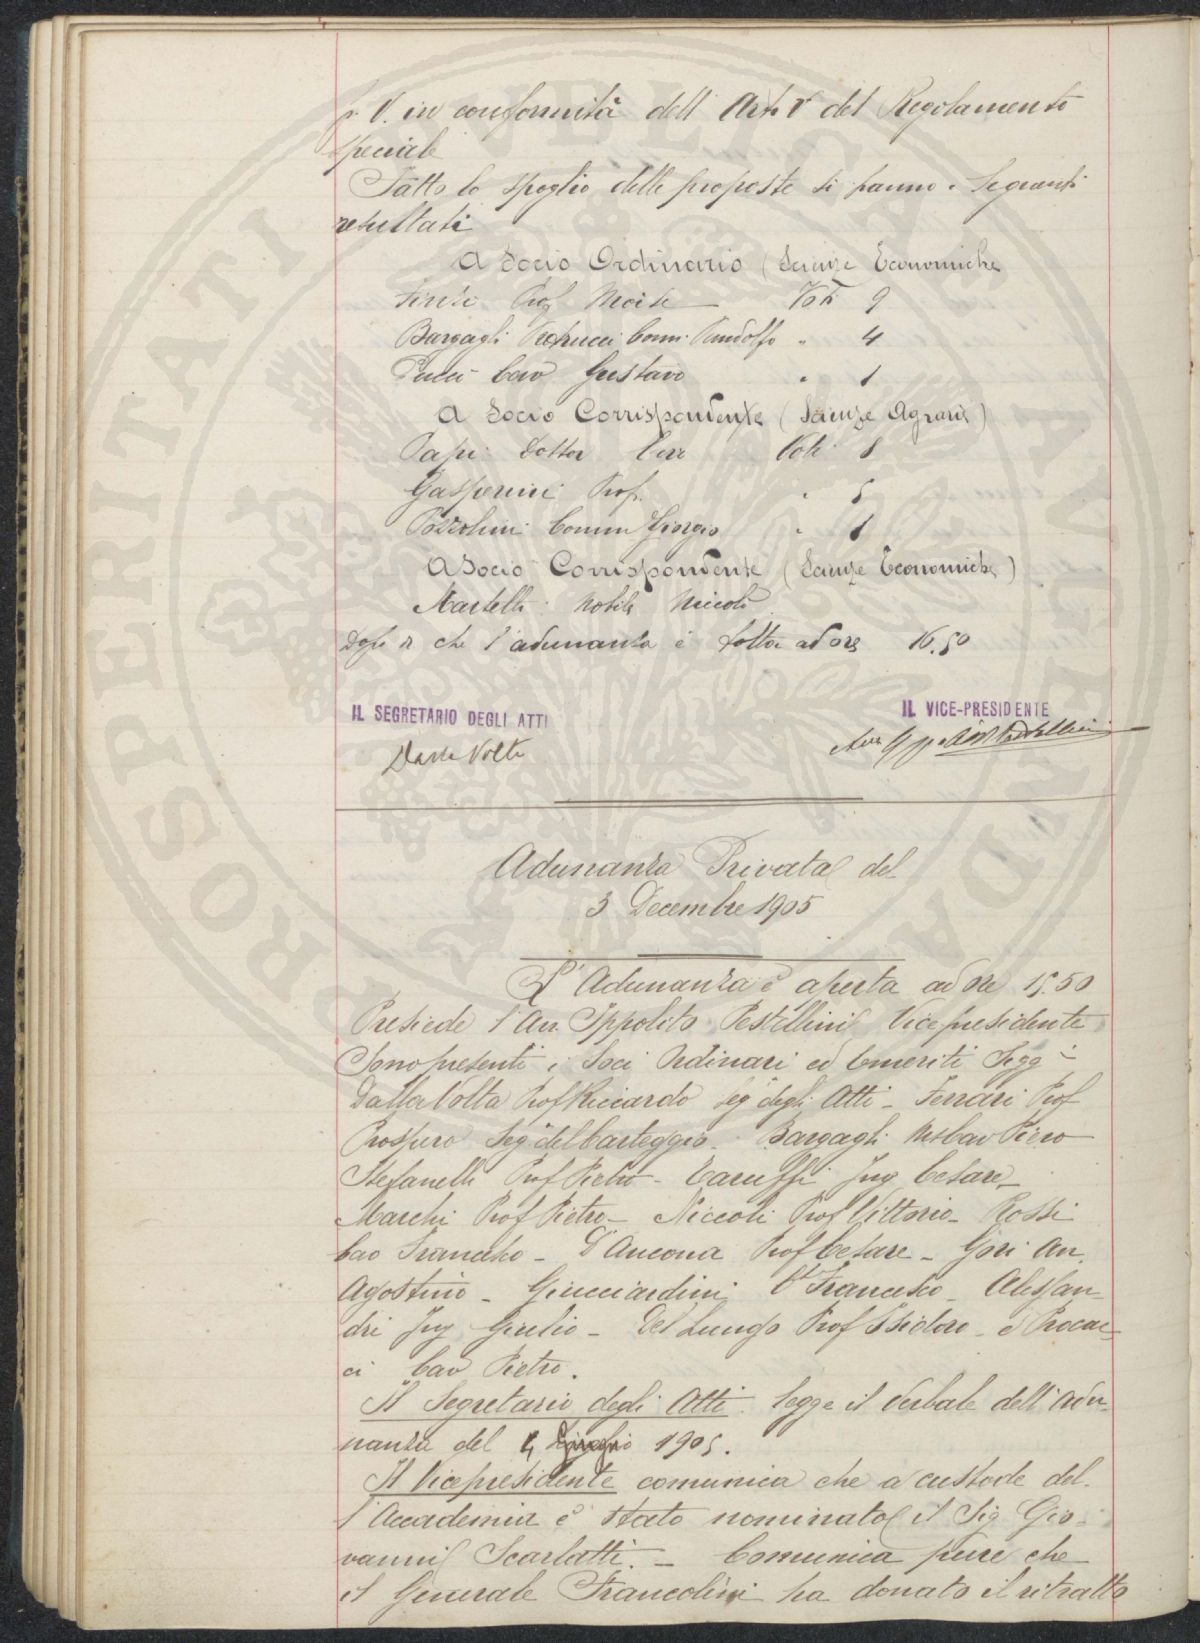 p. V. in conformità dell' Art. V del Regolamento
speciale
Fatto lo spoglio delle proposte si hanno i seguenti
resultati
A Socio Ordinario (Scienze Economiche
Finzi Prof Moise Voti 9
Bargagli Petrucci Comm. Pandolfo " 4
Pucci Cav Gustavo " 1
A Socio Corrispondente (Scienze Agrarie)
Papi Dottor Voti 8
Gasperini Prof. " 5
Pozzolini Comm Giorgio " 1
A Socio Corrispondente (Scienze Economiche)
Martelli Nobile Niccolò
Dopo di che l'adunanza è tolta ad ore 16.50
IL SEGRETARIO DEGLI ATTI
IL VICE-PRESIDENTE
Dalla Volta
Avv Ippolito Pestellini
Adunanza Privata del
3 Decembre 1905
L'Adunanza è aperta ad ore 15.50
Presiede l'Avv. Ippolito Pestellini Vicepresidente
Sono presenti i Soci Ordinari ed Emeriti Sigg i
Dalla Volta Prof Riccardo Seg degli Atti - Ferrari Prof
Prospero Seg del Carteggio - Bargagli Cav Piero
Stefanelli Prof Pietro - Taruffi Ing Cesare -
Marchi Prof Pietro - Niccoli Prof Vittorio - Rossi
Cav Francesco - D'Ancona Prof Cesare - Gori Avv.
Agostino - Guicciardini Ct Francesco - Alessan-
dri Ing Giulio - Del Lungo Prof Isidoro - e Procac-
ci Cav Pietro.
Il Segretario degli Atti legge il Verbale dell'Adu-
nanza del 4 1905.
Il Vicepresidente comunica che a custode del-
l'Accademia è stato nominato il Sig Gio-
vanni Scarlatti. - Comunica pure che
il Generale Francolini ha donato il ritratto
PROSPERITATI PUBLICAE AUGENDAE